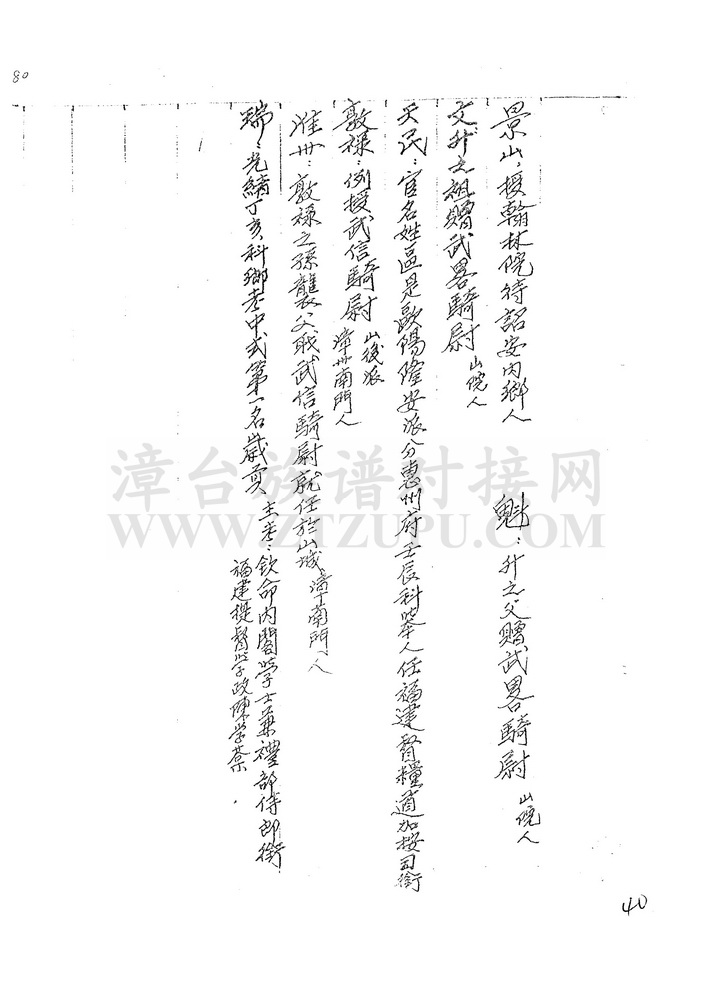 80
景山:授翰林院待詔安内鄉人
魁:升之父贈武畧騎尉 山院人
文升之祖贈武畧騎尉 山院人
天民:官名姓區是歐陽隆安派分惠州府壬辰科舉人任福建督糧道加按司銜
敦祿:例授武信騎尉 山後派 漳州南門人
淮州:敦祿之孫襲父職武信騎尉就任於山城 漳南門人
瑞:光緒丁亥科鄉考中式第一名歲貢 主考:欽命内閣學士兼禮部侍郎銜
福建提督學政陳學棻.
漳台族谱对接网
WWW.ZTZUPU.COM
40